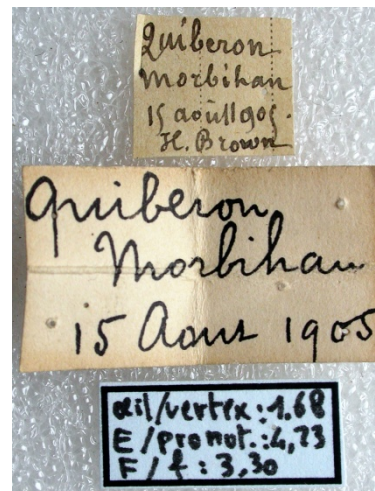 Quiberon
Morbihan
15 août 1905.
H. Brown
Quiberon
Morbihan
15 Aout 1905
œil/vertex : 1.68
E/pronot. : 4,73
F/f : 3,30